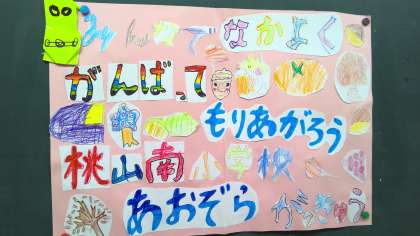 みんなでなかよく
がんばって
もりあがろう
桃山南小学校
あおぞら
がっきゅう